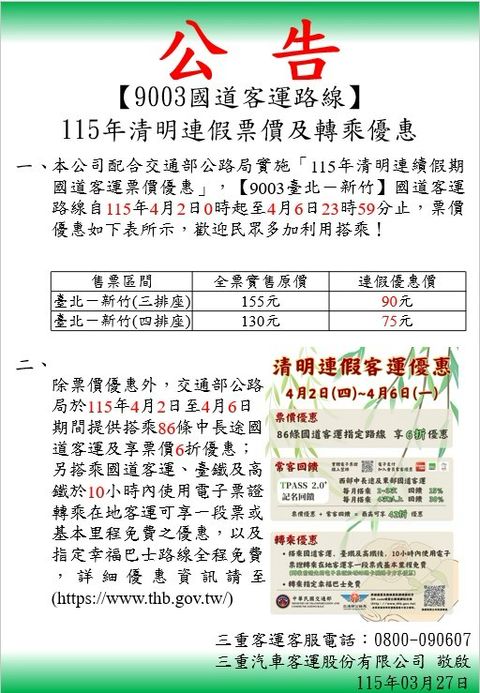 公告
【9003國道客運路線】
115年清明連假票價及轉乘優惠
一、本公司配合交通部公路局實施「115年清明連續假期
國道客運票價優惠」，【9003臺北－新竹】國道客運
路線自115年4月2日0時起至4月6日23時59分止，票價
優惠如下表所示，歡迎民眾多加利用搭乘！
售票區間 全票實售原價 連假優惠價
臺北－新竹(三排座) 155元 90元
臺北－新竹(四排座) 130元 75元
二、
除票價優惠外，交通部公路
局於115年4月2日至4月6日
期間提供搭乘86條中長途國
道客運及享票價6折優惠；
另搭乘國道客運、臺鐵及高
鐵於10小時內使用電子票證
轉乘在地客運可享一段票或
基本里程免費之優惠，以及
指定幸福巴士路線全程免費
，詳細優惠資訊請至
(https://www.thb.gov.tw/)
清明連假客運優惠
4月2日(四)~4月6日(一)
票價優惠
86條國道客運指定路線 享6折優惠
常客回饋
TPASS 2.0+
記名回饋
西部中長途及東部國道客運
每月搭乘 2-3次 回饋 15%
每月搭乘 4次以上 回饋 30%
票價優惠 + 常客回饋 = 最高可享 42折 優惠
轉乘優惠
•搭乘國道客運、臺鐵及高鐵後，10小時內使用電子
票證轉乘在地客運享一段票或基本里程免費
•轉乘指定幸福巴士免費
中華民國交通部
三重客運客服電話：0800-090607
三重汽車客運股份有限公司 敬啟
115年03月27日